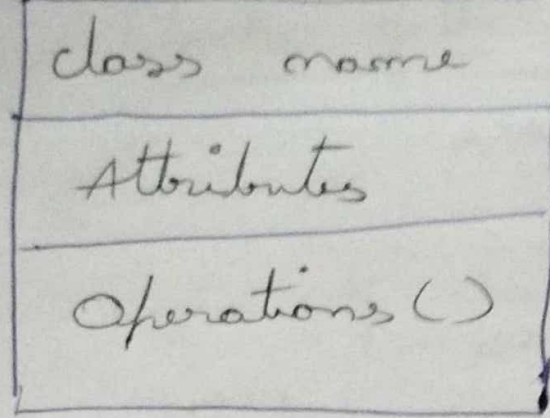 class name
Attributes
Operations ()